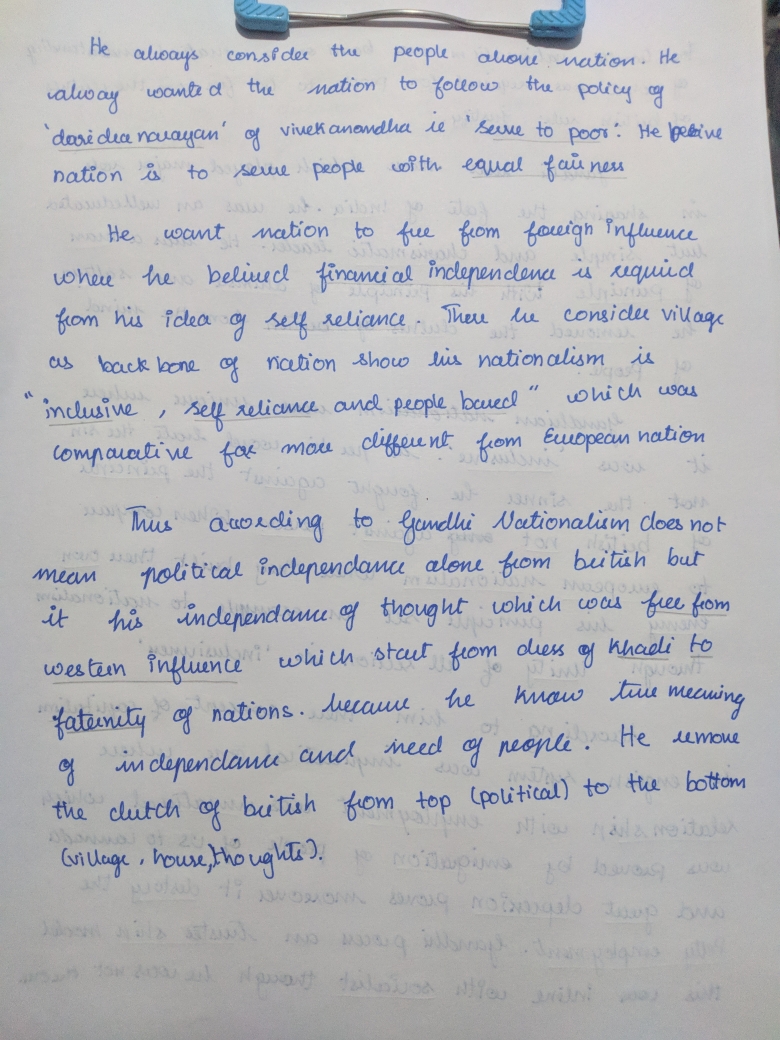 He always consider the people above nation. He
alway wanted the nation to follow the policy of
'daridra narayan' of vivekanandha ie 'serve to poor'. He belive
nation is to serve people with equal fairness
He want nation to free from foreign influence
where he belived financial independence is requid
from his idea of self reliance. There he consider village
as back bone of nation show his nationalism is
"inclusive, self reliance and people based" which was
comparative far more different from European nation
Thus according to Gandhi Nationalism does not
mean political independance alone from british but
it his independance of thought which was free from
western influence which start from dress of khadi to
faternity of nations. because he know true meaning
of independance and need of people. He remove
the clutch of british from top (political) to the bottom
(village, house, thoughts).